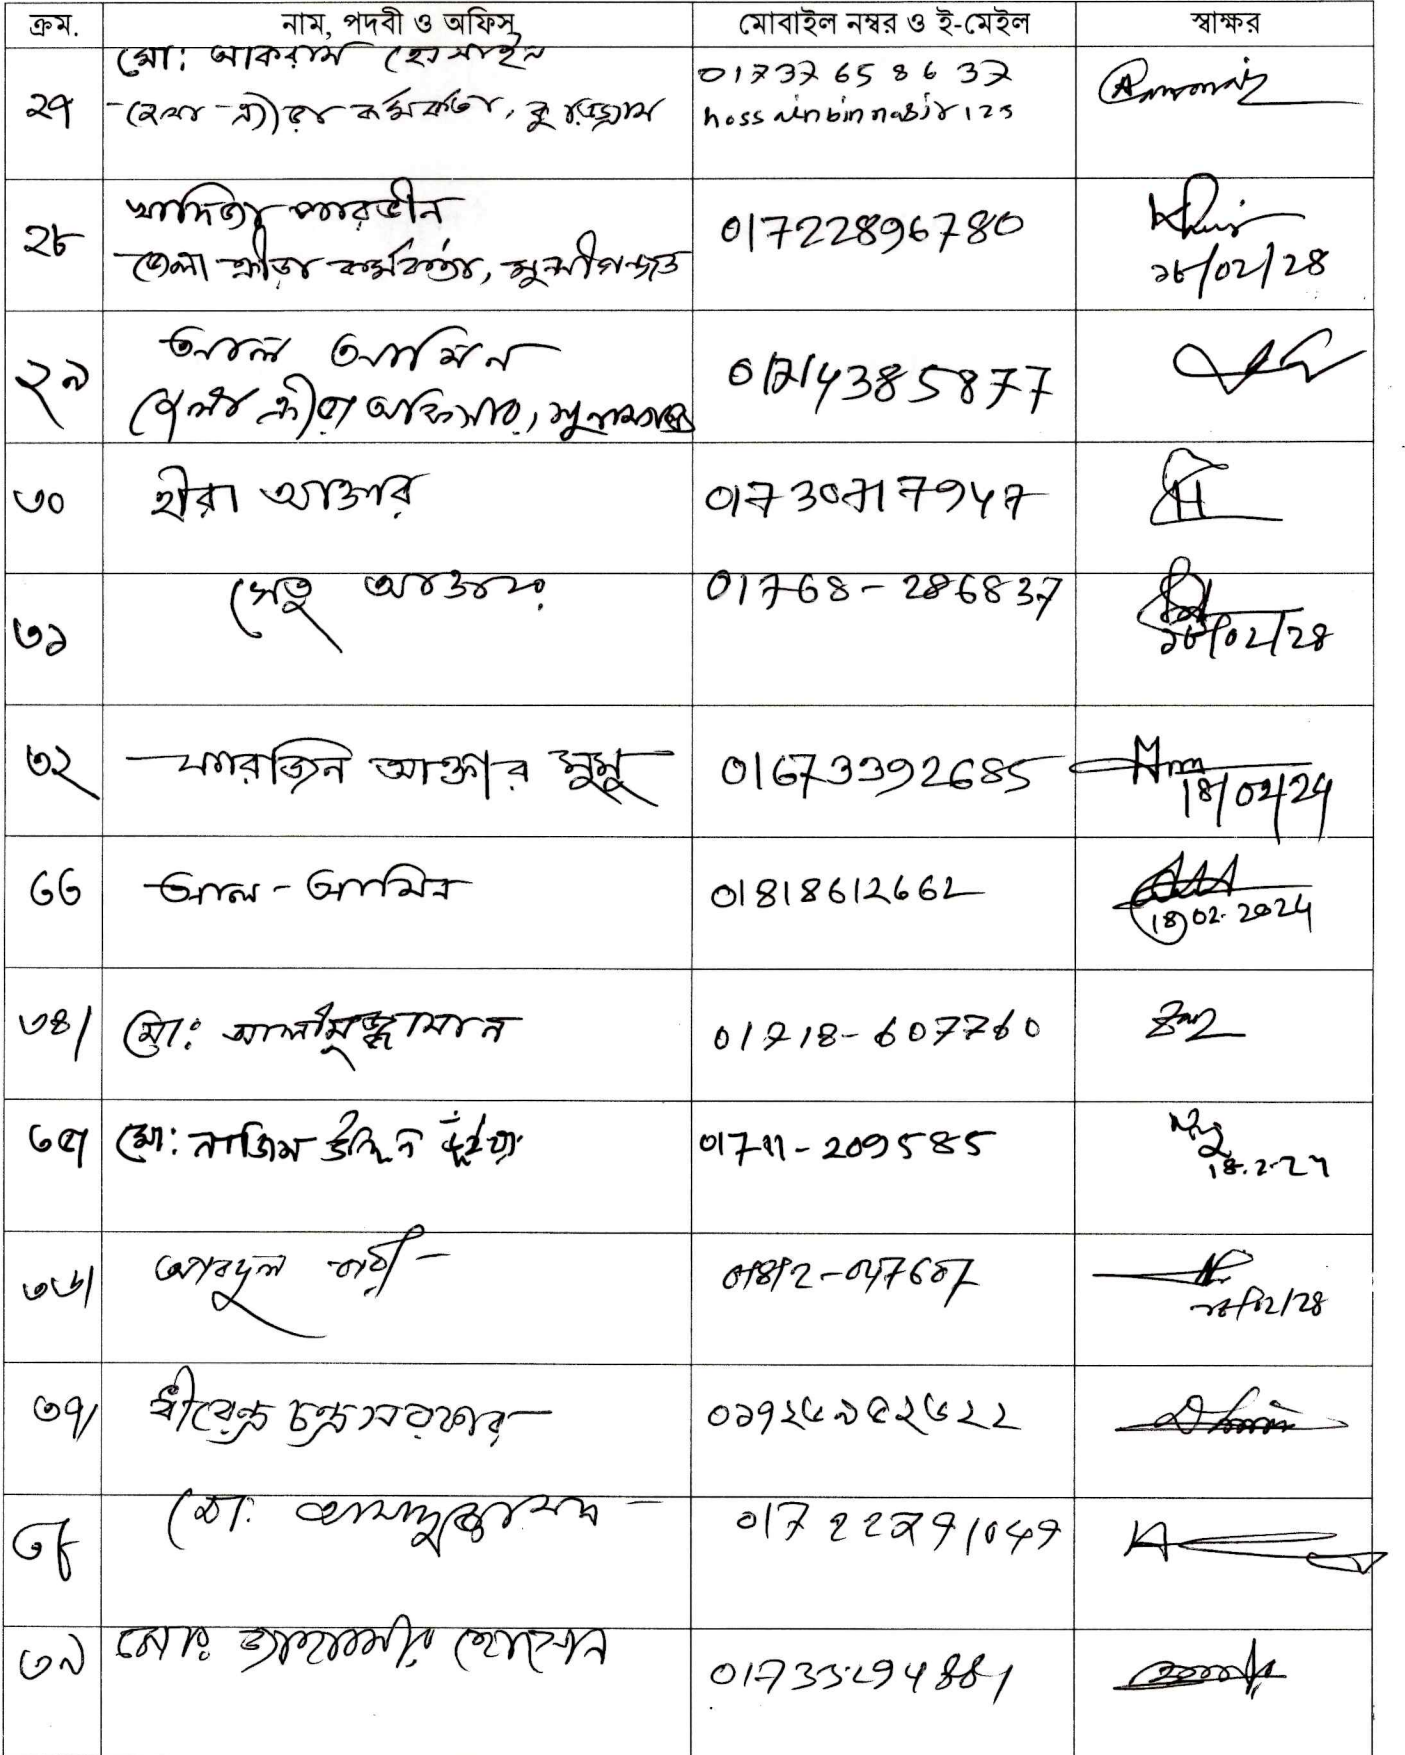 ক্রম. নাম, পদবী ও অফিস মোবাইল নম্বর ও ই-মেইল স্বাক্ষর
মো: আকরাম হোসাইন 01737658637
২৭ জেলা ক্রীড়া কর্মকর্তা, কুড়িগ্রাম hossainbinnabir123
খাদিজা পারভীন
২৮ জেলা ক্রীড়া কর্মকর্তা, মুন্সীগঞ্জ 01722896780 ১৮/০২/২৪
আল আমিন
২৯ জেলা ক্রীড়া অফিসার, সুনামগঞ্জ 01714385877
৩০ হীরা আক্তার 01730717947
৩১ সেতু আক্তার 01768-286837 ১৮/০২/২৪
৩২ ফারজিন আক্তার সুমু 01673392685 18/02/24
৩৩ আল-আমিন 01818612662 18.02.2024
৩৪/ মো: আলীমুজ্জামান 01718-607760
৩৫/ মো: নাজিম উদ্দিন ভূঁইয়া 01711-209585 18.2.24
৩৬/ আবদুল বারী 01812-047607 ১৮/০২/২৪
৩৭/ ধীরেন্দ্র চন্দ্র সরকার ০১৭২৬৯৫২৬২২
৩৮ মো: 01722291049
৩৯ মোঃ জাহাঙ্গীর হোসেন 01733294881